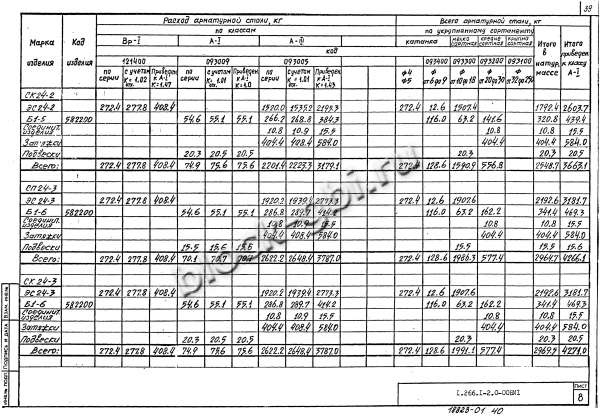 39
Расход арматурной стали, кг
Всего арматурной стали, кг
по классам
по укрупненному сортаменту
Марка изделия
Код изделия
Вр-I
А-I
А-III
катанка
мелкосортная
средне сортная
крупно сортная
Итого в натур. массе
Итого приведен. к классу А-I
код
121400
093009
093005
093400 093300 093200 093100
по серии
с учетом К=1.02 отх.
Приведен. к А-I К=1.47
по серии
с учетом К=1.01 отх.
Приведен. к А-I К=1.0
по серии
с учетом К=1.01 отх.
Приведен. к А-I К=1.43
Ф4 Ф5
Ф 6 до 9
Ф 10 до 18
Ф 20 до 30
СК24-2
ЭС24-2 272.4 277.8 408.4 1520.0 1535.2 2195.3 272.4 12.6 1507.4 1792.4 2603.7
Б1-5 582200 54.6 55.1 55.1 266.2 268.8 384.3 116.0 63.2 141.6 320.8 439.4
Соединит. изделия 10.8 10.9 15.5 10.8 10.8 15.5
Затяжки 404.4 408.4 584.0 404.4 404.4 584.0
Подвески 20.3 20.5 20.5 20.3 20.3 20.5
Всего: 272.4 277.8 408.4 74.9 75.6 75.6 2201.4 2223.3 3179.1 272.4 128.6 1590.9 556.8 2548.7 3663.1
СП24-3
ЭС24-3 272.4 277.8 408.4 1920.2 1939.4 2773.3 272.4 12.6 1907.6 2192.6 3181.7
Б1-6 582200 54.6 55.1 55.1 286.8 289.7 414.2 116.0 63.2 162.2 341.4 469.3
Соединит. изделия 10.8 10.9 15.5 10.8 10.8 15.5
Затяжки 404.4 408.4 584.0 404.4 404.4 584.0
Подвески 15.5 15.6 15.6 15.5 15.5 15.6
Всего: 272.4 277.8 408.4 70.1 70.7 70.7 2622.2 2648.4 3787.0 272.4 128.6 1986.3 577.4 2964.7 4266.1
СК24-3
ЭС24-3 272.4 277.8 408.4 1920.2 1939.4 2773.3 272.4 12.6 1907.6 2192.6 3181.7
Б1-6 582200 54.6 55.1 55.1 286.8 289.7 414.2 116.0 63.2 162.2 341.4 469.3
Соединит. изделия 10.8 10.9 15.5 10.8 10.8 15.5
Затяжки 404.4 408.4 584.0 404.4 404.4 584.0
Подвески 20.3 20.5 20.5 20.3 20.3 20.5
Всего: 272.4 277.8 408.4 74.9 75.6 75.6 2622.2 2648.4 3787.0 272.4 128.6 1991.1 577.4 2969.5 4271.0
block-gbi.ru
Подпись и дата
1.266.1-2.0-00ВМ1
Лист
8
18828-01 40